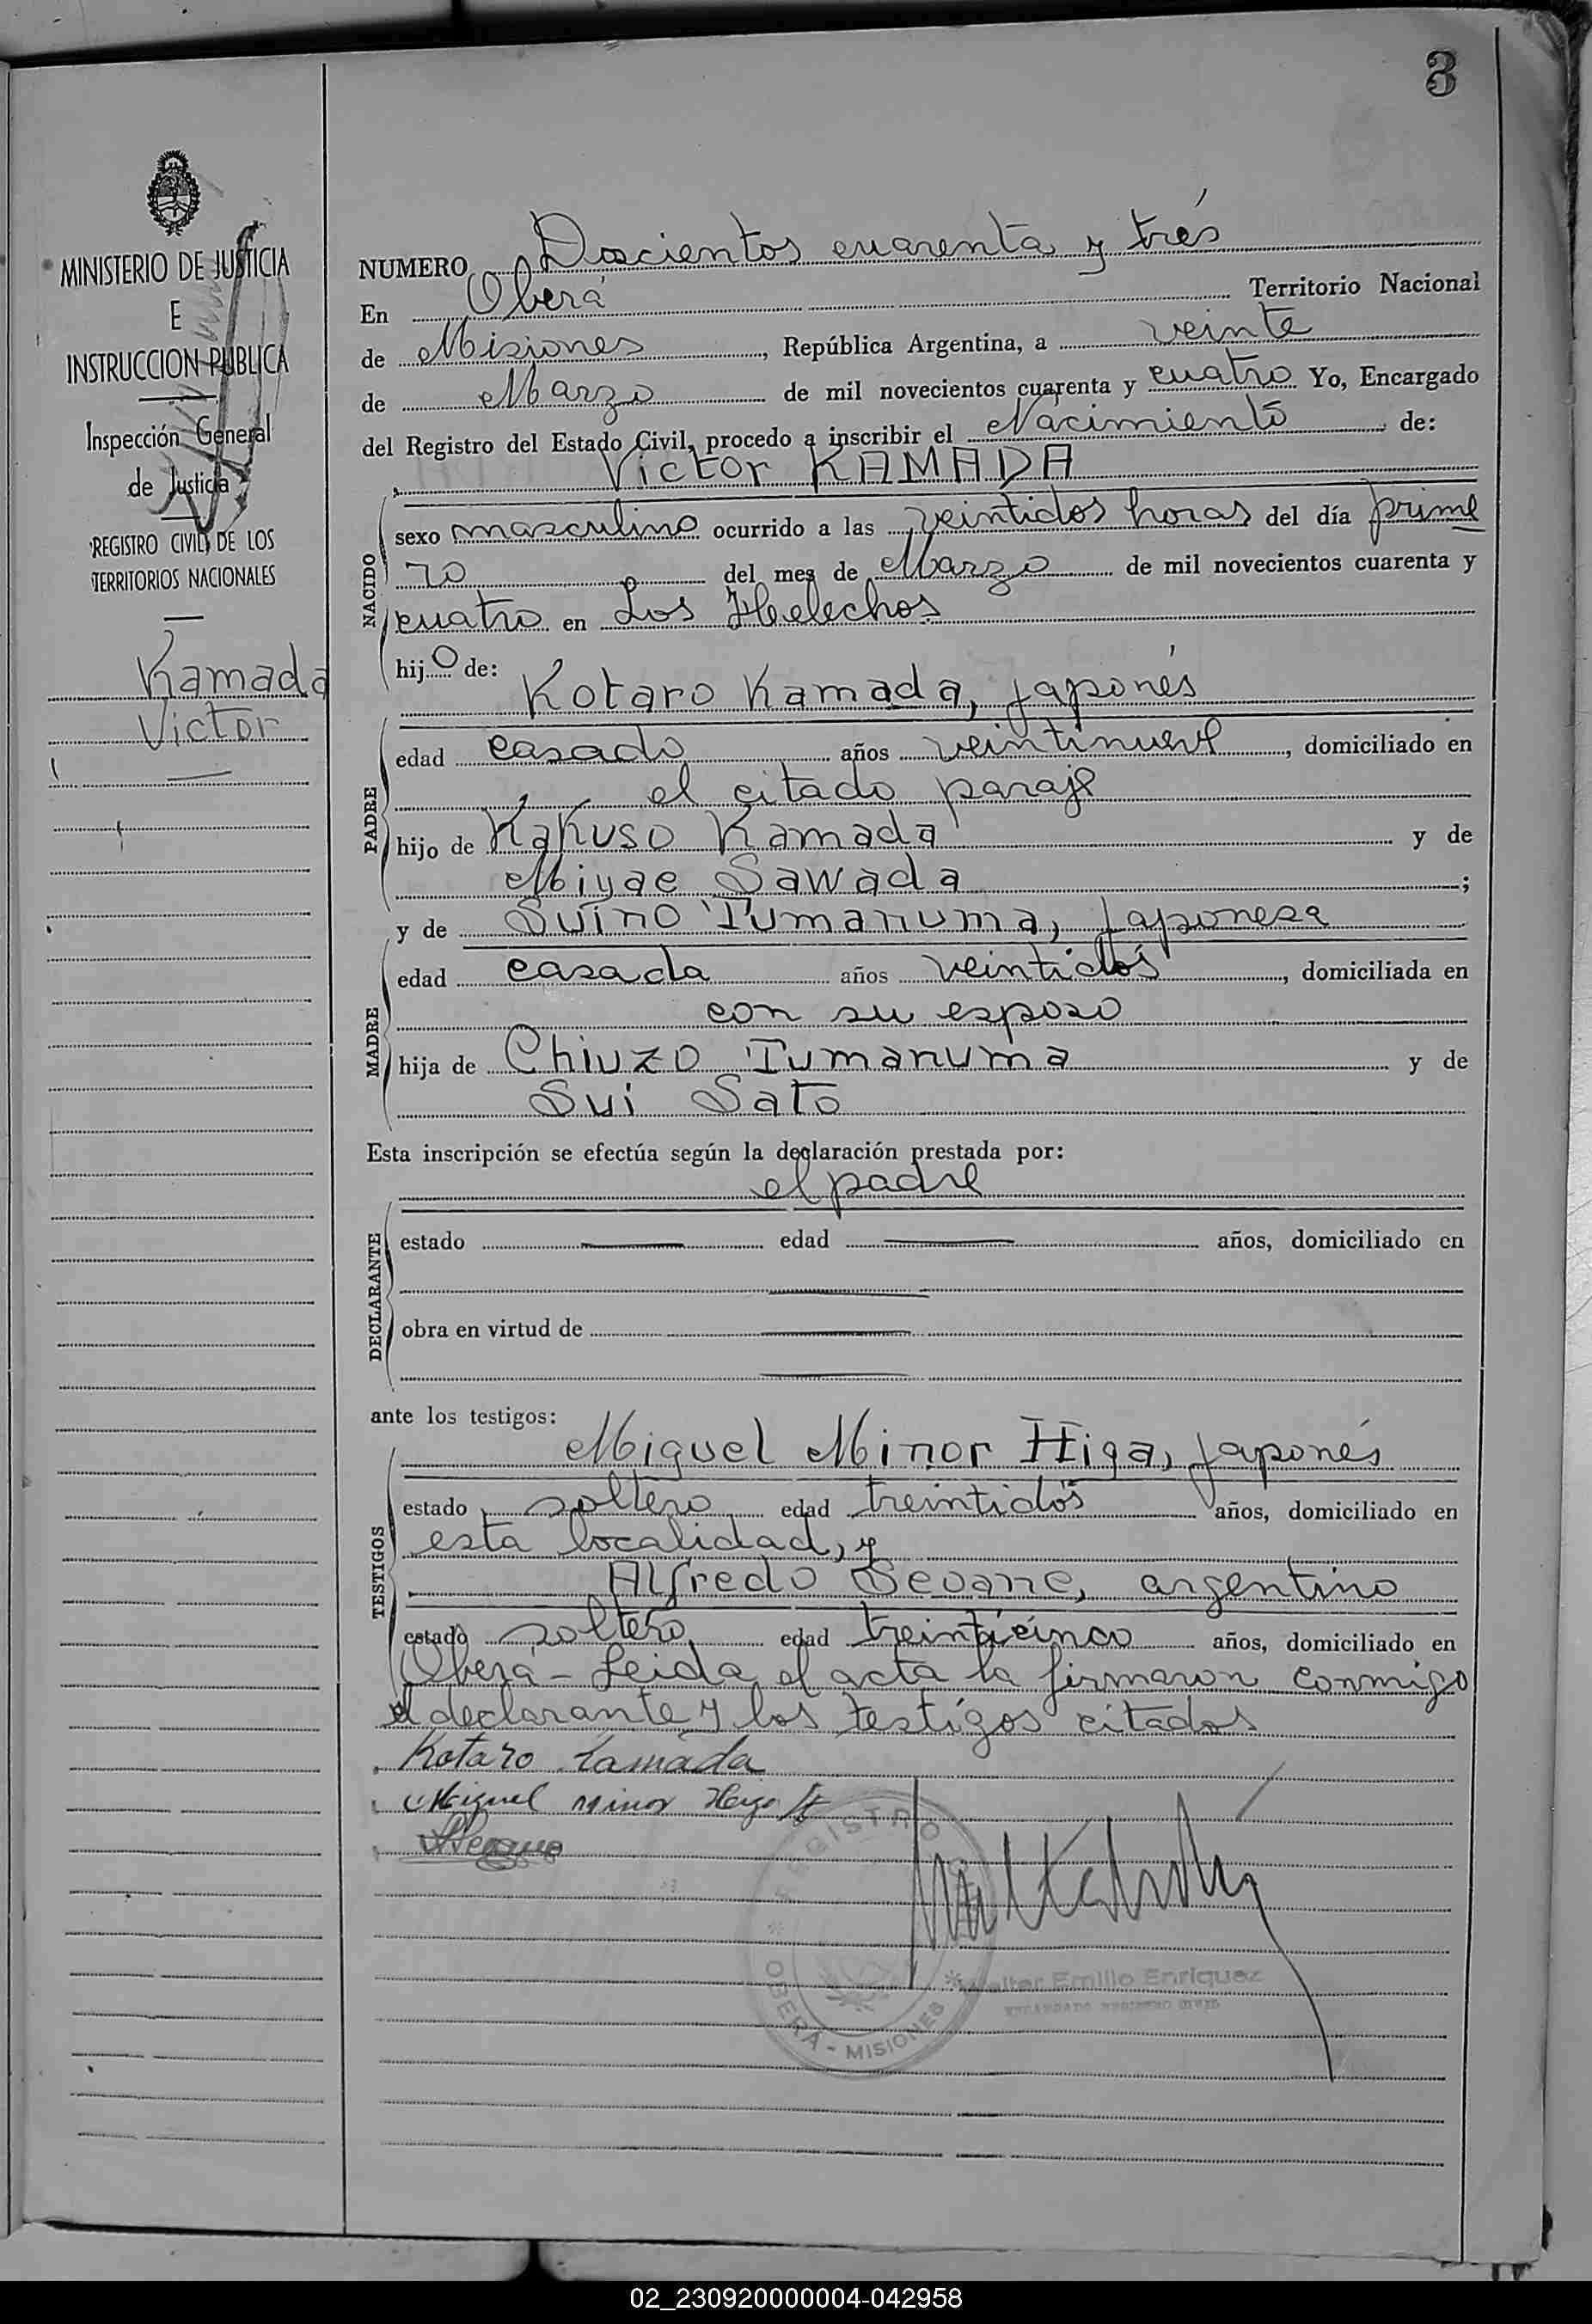 3
MINISTERIO DE JUSTICIA
E
INSTRUCCION PUBLICA
Inspección General
de Justicia
REGISTRO CIVIL DE LOS
TERRITORIOS NACIONALES
Kamada
Victor
NUMERO Doscientos cuarenta y trés
En Oberá Territorio Nacional
de Misiones, República Argentina, a veinte
de Marzo de mil novecientos cuarenta y cuatro Yo, Encargado
del Registro del Estado Civil, procedo a inscribir el Nacimiento de:
Victor KAMADA
NACIDO
sexo masculino ocurrido a las veintidos horas del día prime
ro del mes de Marzo de mil novecientos cuarenta y
cuatro en Los Helechos
hijo de:
Kotaro Kamada, japonés
PADRE
edad casado años veintinueve, domiciliado en
el citado paraje
hijo de Kakuso Kamada y de
Miyae Sawada;
y de Suino Tumanuma, japonesa
MADRE
edad casada años veintidós, domiciliada en
con su esposo
hija de Chiuzo Tumanuma y de
Sui Sato
Esta inscripción se efectúa según la declaración prestada por:
el padre
DECLARANTE
estado edad años, domiciliado en
obra en virtud de
ante los testigos:
Miguel Minor Higa, japonés
TESTIGOS
estado soltero edad treintidós años, domiciliado en
esta localidad, y
Alfredo Seoane, argentino
estado soltero, edad treinticinco años, domiciliado en
Oberá - Leida el acta la firmaron conmigo
el declarante y los testigos citados
Kotaro Kamada
Miguel Minor Higa
REGISTRO
OBERÁ - MISIONES
Walter Emilio Enriquez
ENCARGADO REGISTRO CIVIL
02_230920000004-042958